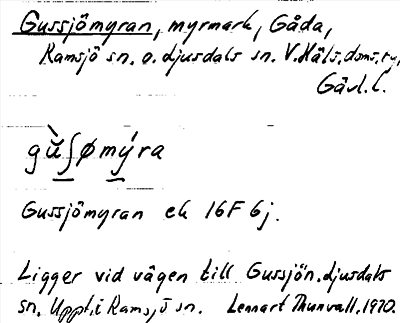 Gussjömyran, myrmark, Gåda,
Ramsjö sn. o. Ljusdals sn. V.Häls. doms.,
Gävl.l.
gùʃømýra
Gussjömyran ek 16F 6j.
Ligger vid vägen till Gussjön, Ljusdals
sn. Uppt. i Ramsjö sn. Lennart Thunvall. 1970.